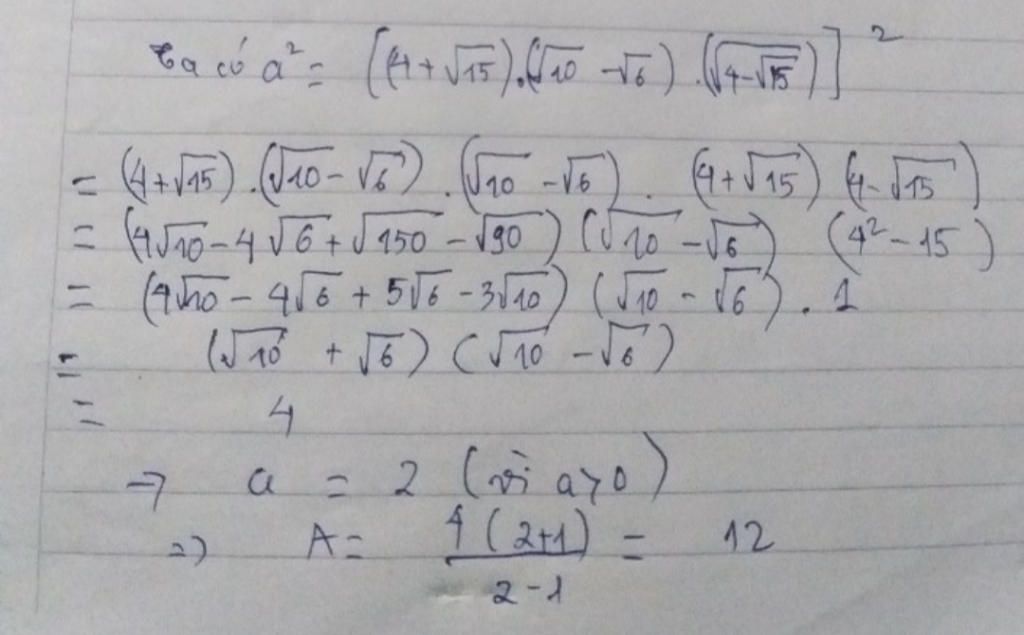 Ta có a² = [(4+√15).(√10 -√6).(√(4-√15))]²
= (4+√15).(√10-√6).(√10 -√6). (4+√15) (4-√15)
= (4√10-4√6+√150-√90) (√10 -√6) (4²-15)
= (4√10-4√6+5√6-3√10) (√10-√6).1
= (√10 +√6) (√10 -√6)
= 4
→ a = 2 (vì a>0)
=> A= 4(2+1)/(2-1) = 12